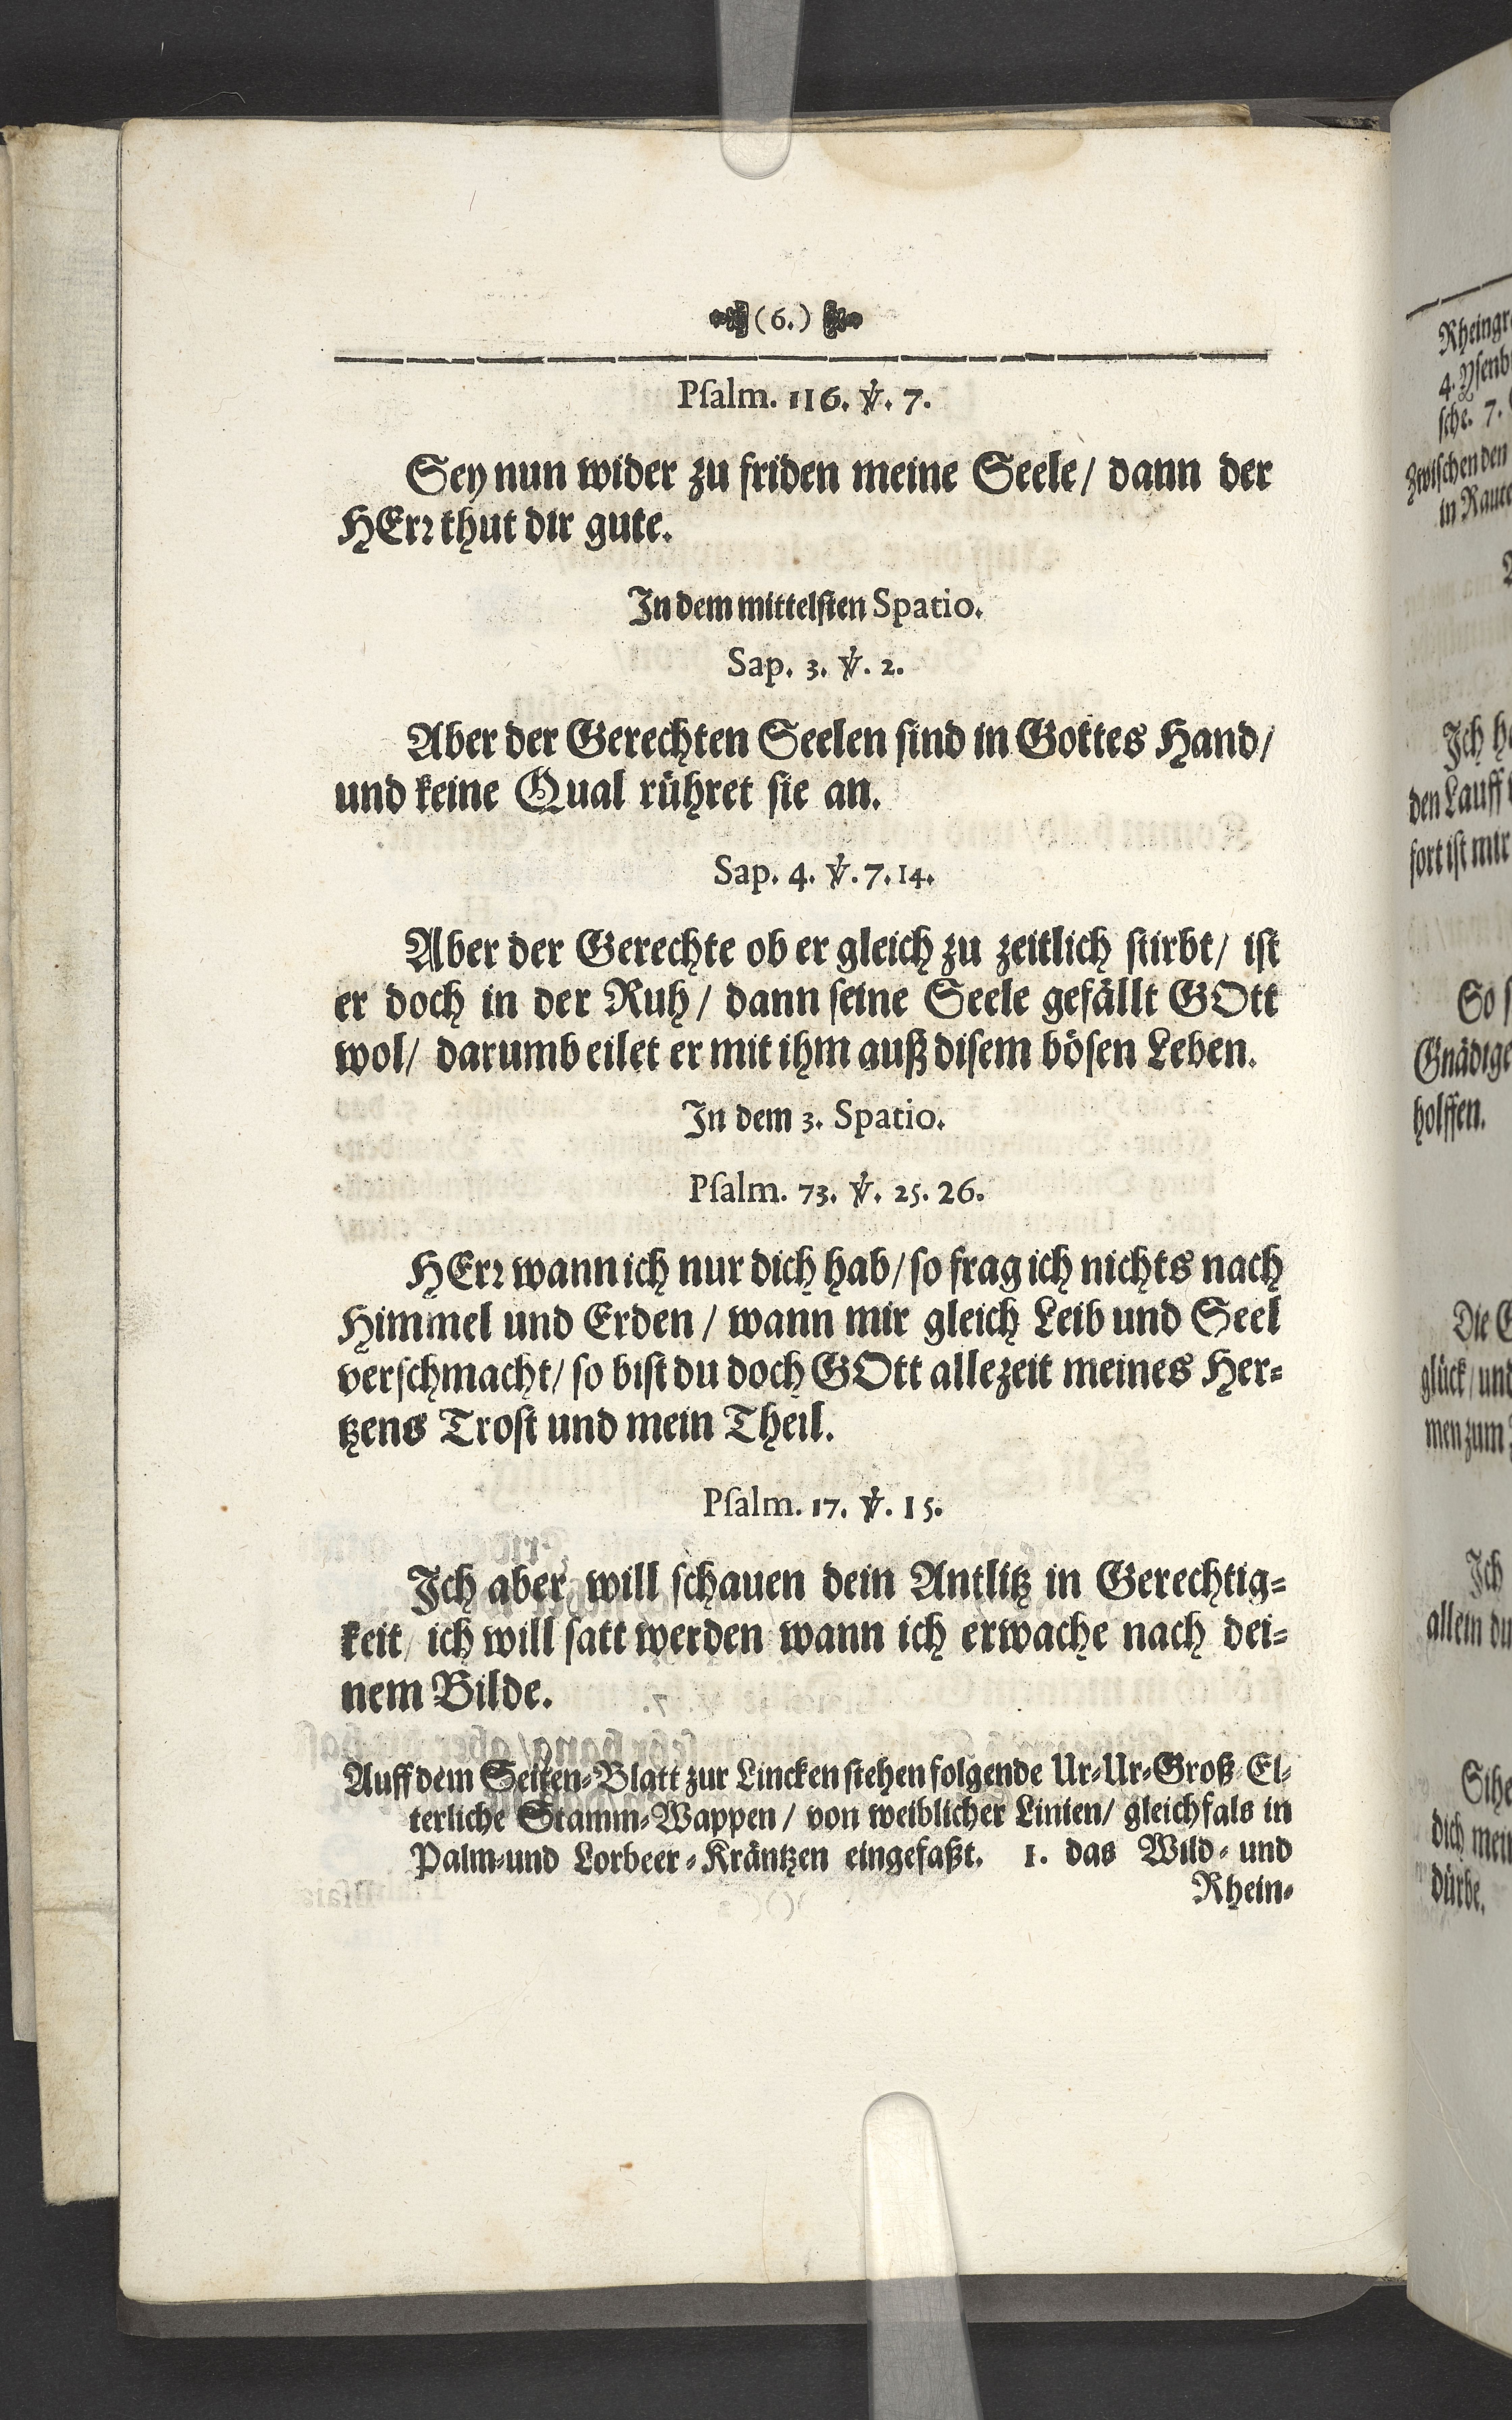 (6.)
Pſalm. 116. ℣. 7.
Sey nun wider zu friden meine Seele/ dann der
HErꝛ thut dir gute.
In dem mittelſten Spatio.
Sap. 3. ℣. 2.
Aber der Gerechten Seelen ſind in Gottes Hand/
und keine Qual rühret ſie an.
Sap. 4. ℣. 7. 14.
Aber der Gerechte ob er gleich zu zeitlich ſtirbt/ iſt
er doch in der Ruh/ dann ſeine Seele gefällt GOtt
wol/ darumb eilet er mit ihm auß diſem böſen Leben.
In dem 3. Spatio.
Pſalm. 73. ℣. 25. 26.
HErꝛ wann ich nur dich hab/ ſo frag ich nichts nach
Himmel und Erden/ wann mir gleich Leib und Seel
verſchmacht/ ſo biſt du doch GOtt allezeit meines Her-
tzens Troſt und mein Theil.
Pſalm. 17. ℣. 15.
Ich aber will ſchauen dein Antlitz in Gerechtig-
keit/ ich will ſatt werden wann ich erwache nach dei-
nem Bilde.
Auff dem Seiten-Blatt zur Lincken ſtehen folgende Ur-Ur-Groß-El-
terliche Stamm-Wappen/ von weiblicher Linien/ gleichfals in
Palm-und Lorbeer-Kräntzen eingefaßt. 1. das Wild- und
Rhein-
4.
ſche. 7.
Zwiſchen den
in
Ich
den Lauff
fort iſt mir
So
holffen.
Die
glück/ und
men zum
Ich
allein
dich
dürbe.